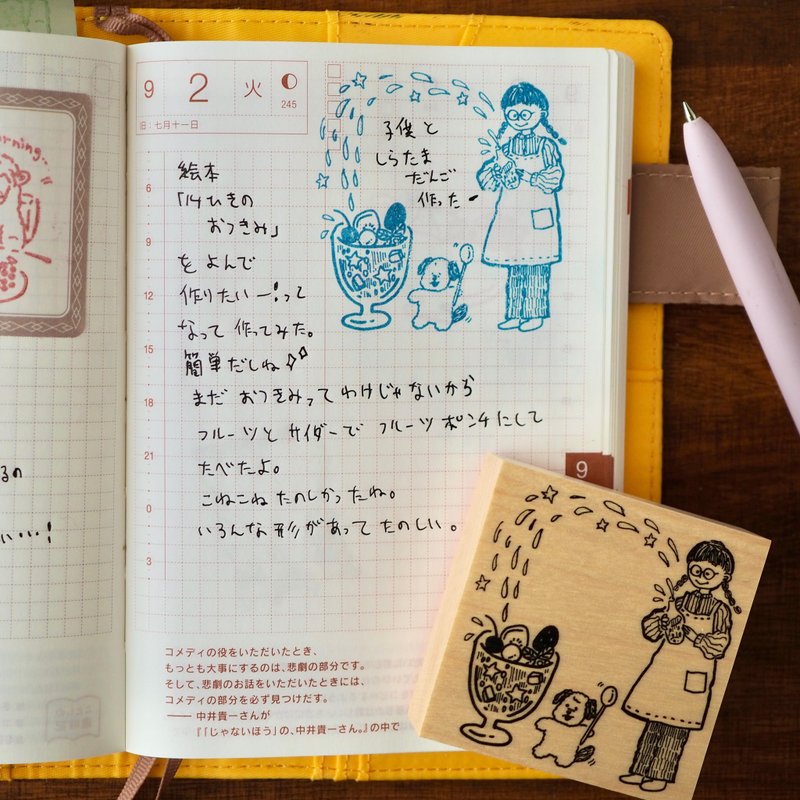 orning..
るの
いい…!
9 2 火
245
旧:七月十一日
子供と
しらたま
だんご
作った
絵本
「14ひきの
おつきみ」
をよんで
作りたいー!って
なって作ってみた。
簡単だしね
まだおつきみってわけじゃないから
フルーツとサイダーでフルーツポンチにして
たべたよ。
こねこねたのしかったね。
いろんな形があってたのしい。
6
9
12
15
18
21
0
3
9
コメディの役をいただいたとき、
もっとも大事にするのは、悲劇の部分です。
そして、悲劇のお話をいただいたときには、
コメディの部分を必ず見つけだす。
—— 中井貴一さんが
『「じゃないほう」の、中井貴一さん。』の中で